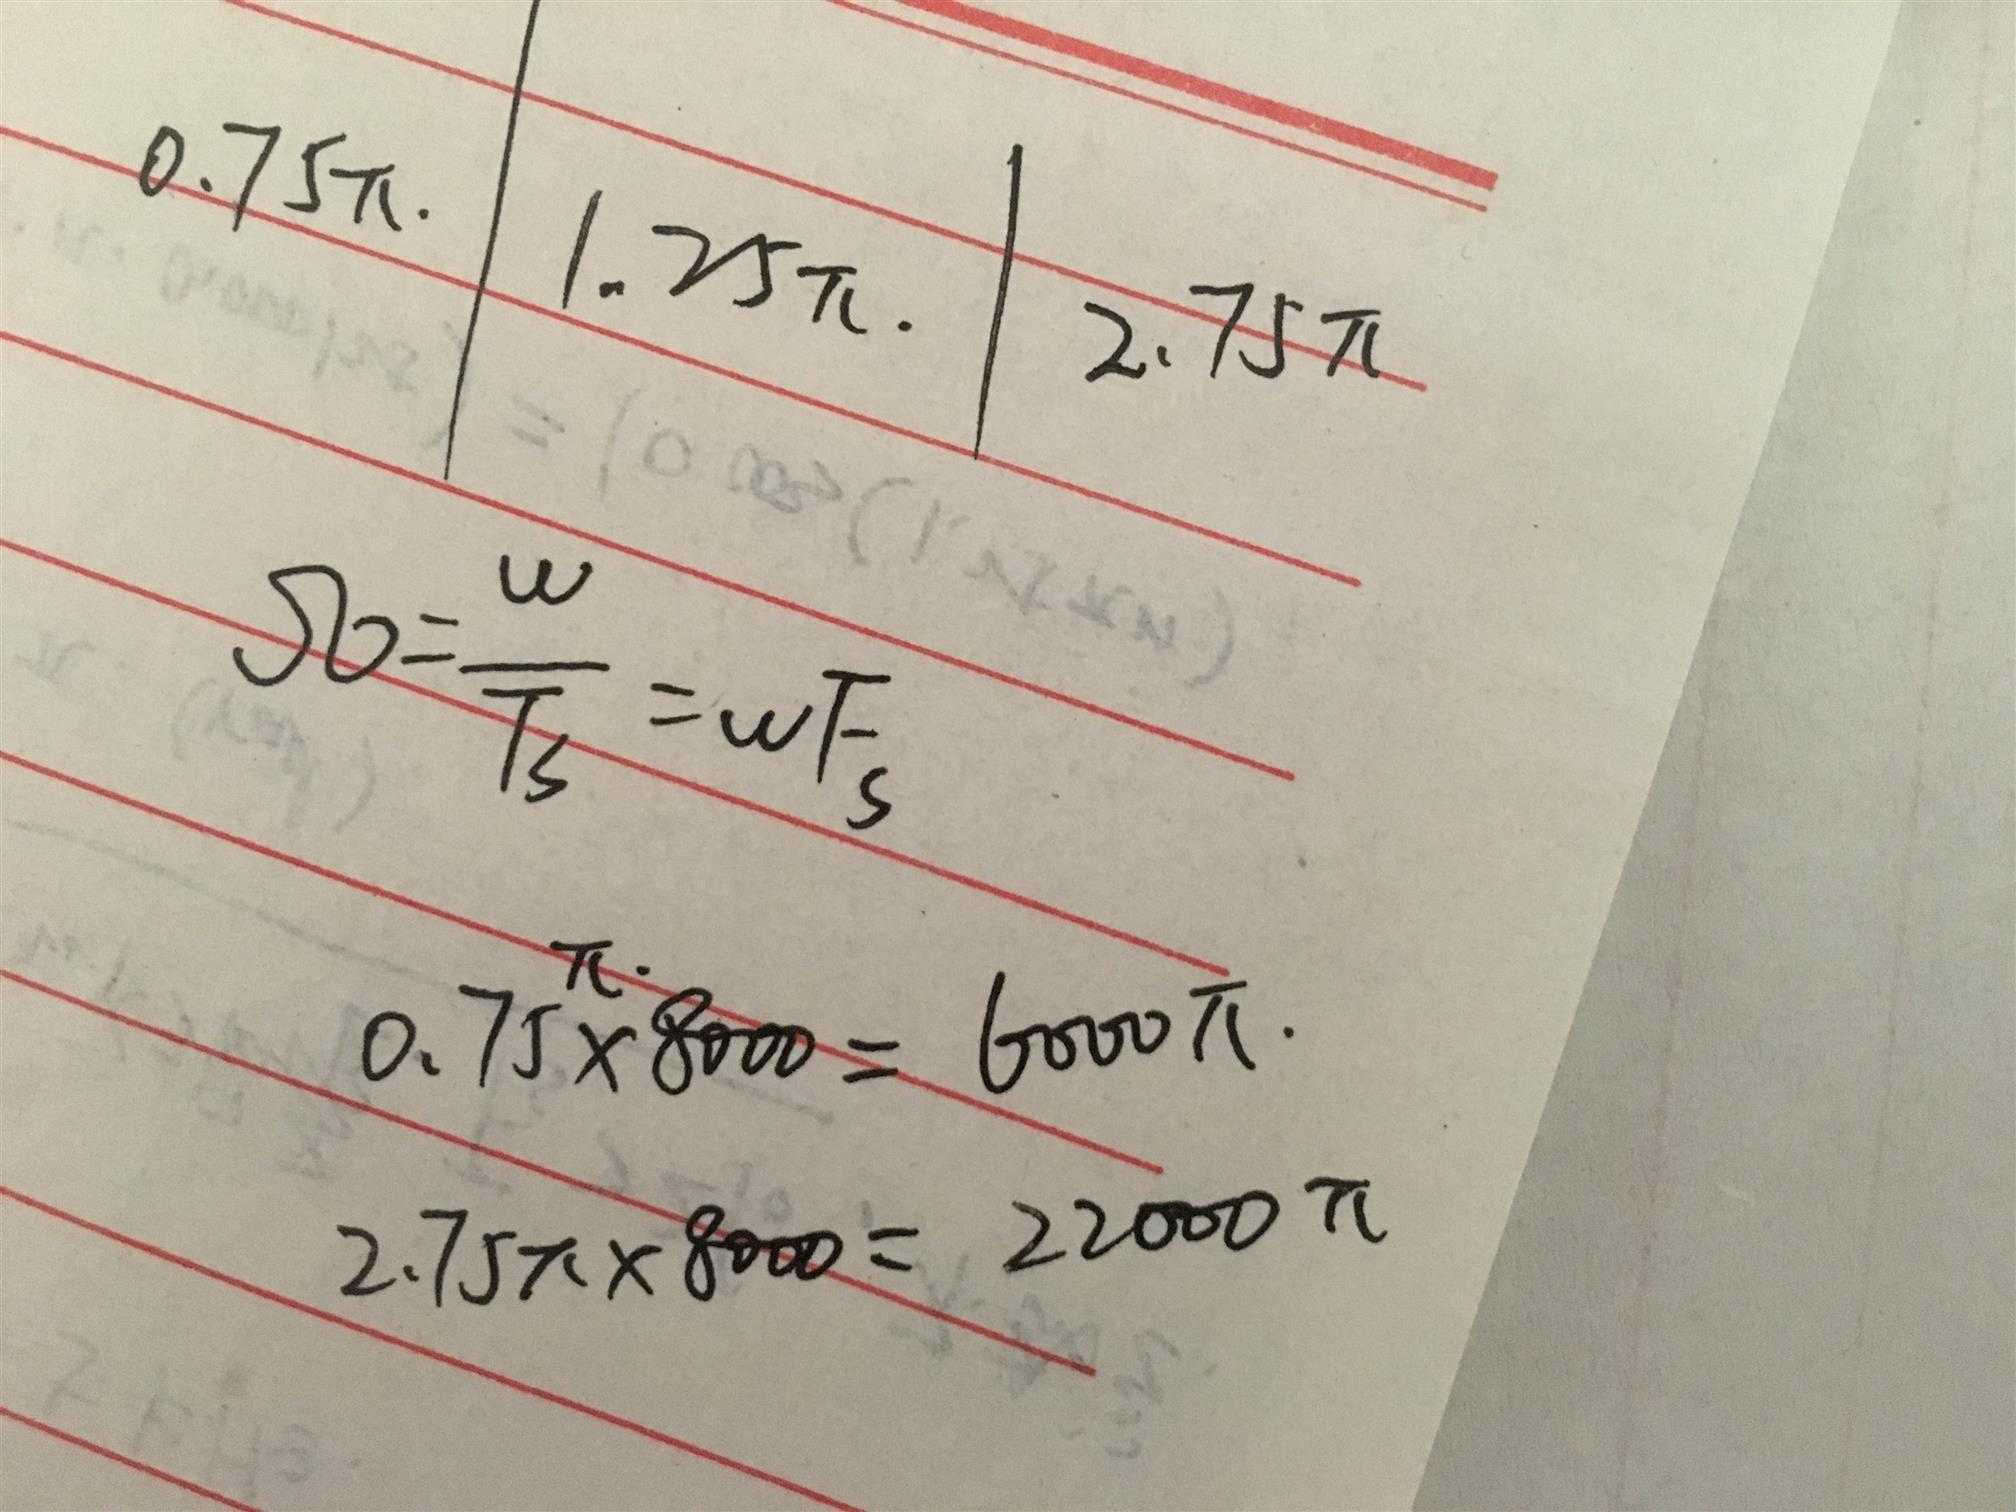 0.75π. | 1.25π. | 2.75π
Ω0 = w/Ts = wFs
0.75π. × 8000 = 6000π.
2.75π × 8000 = 22000π